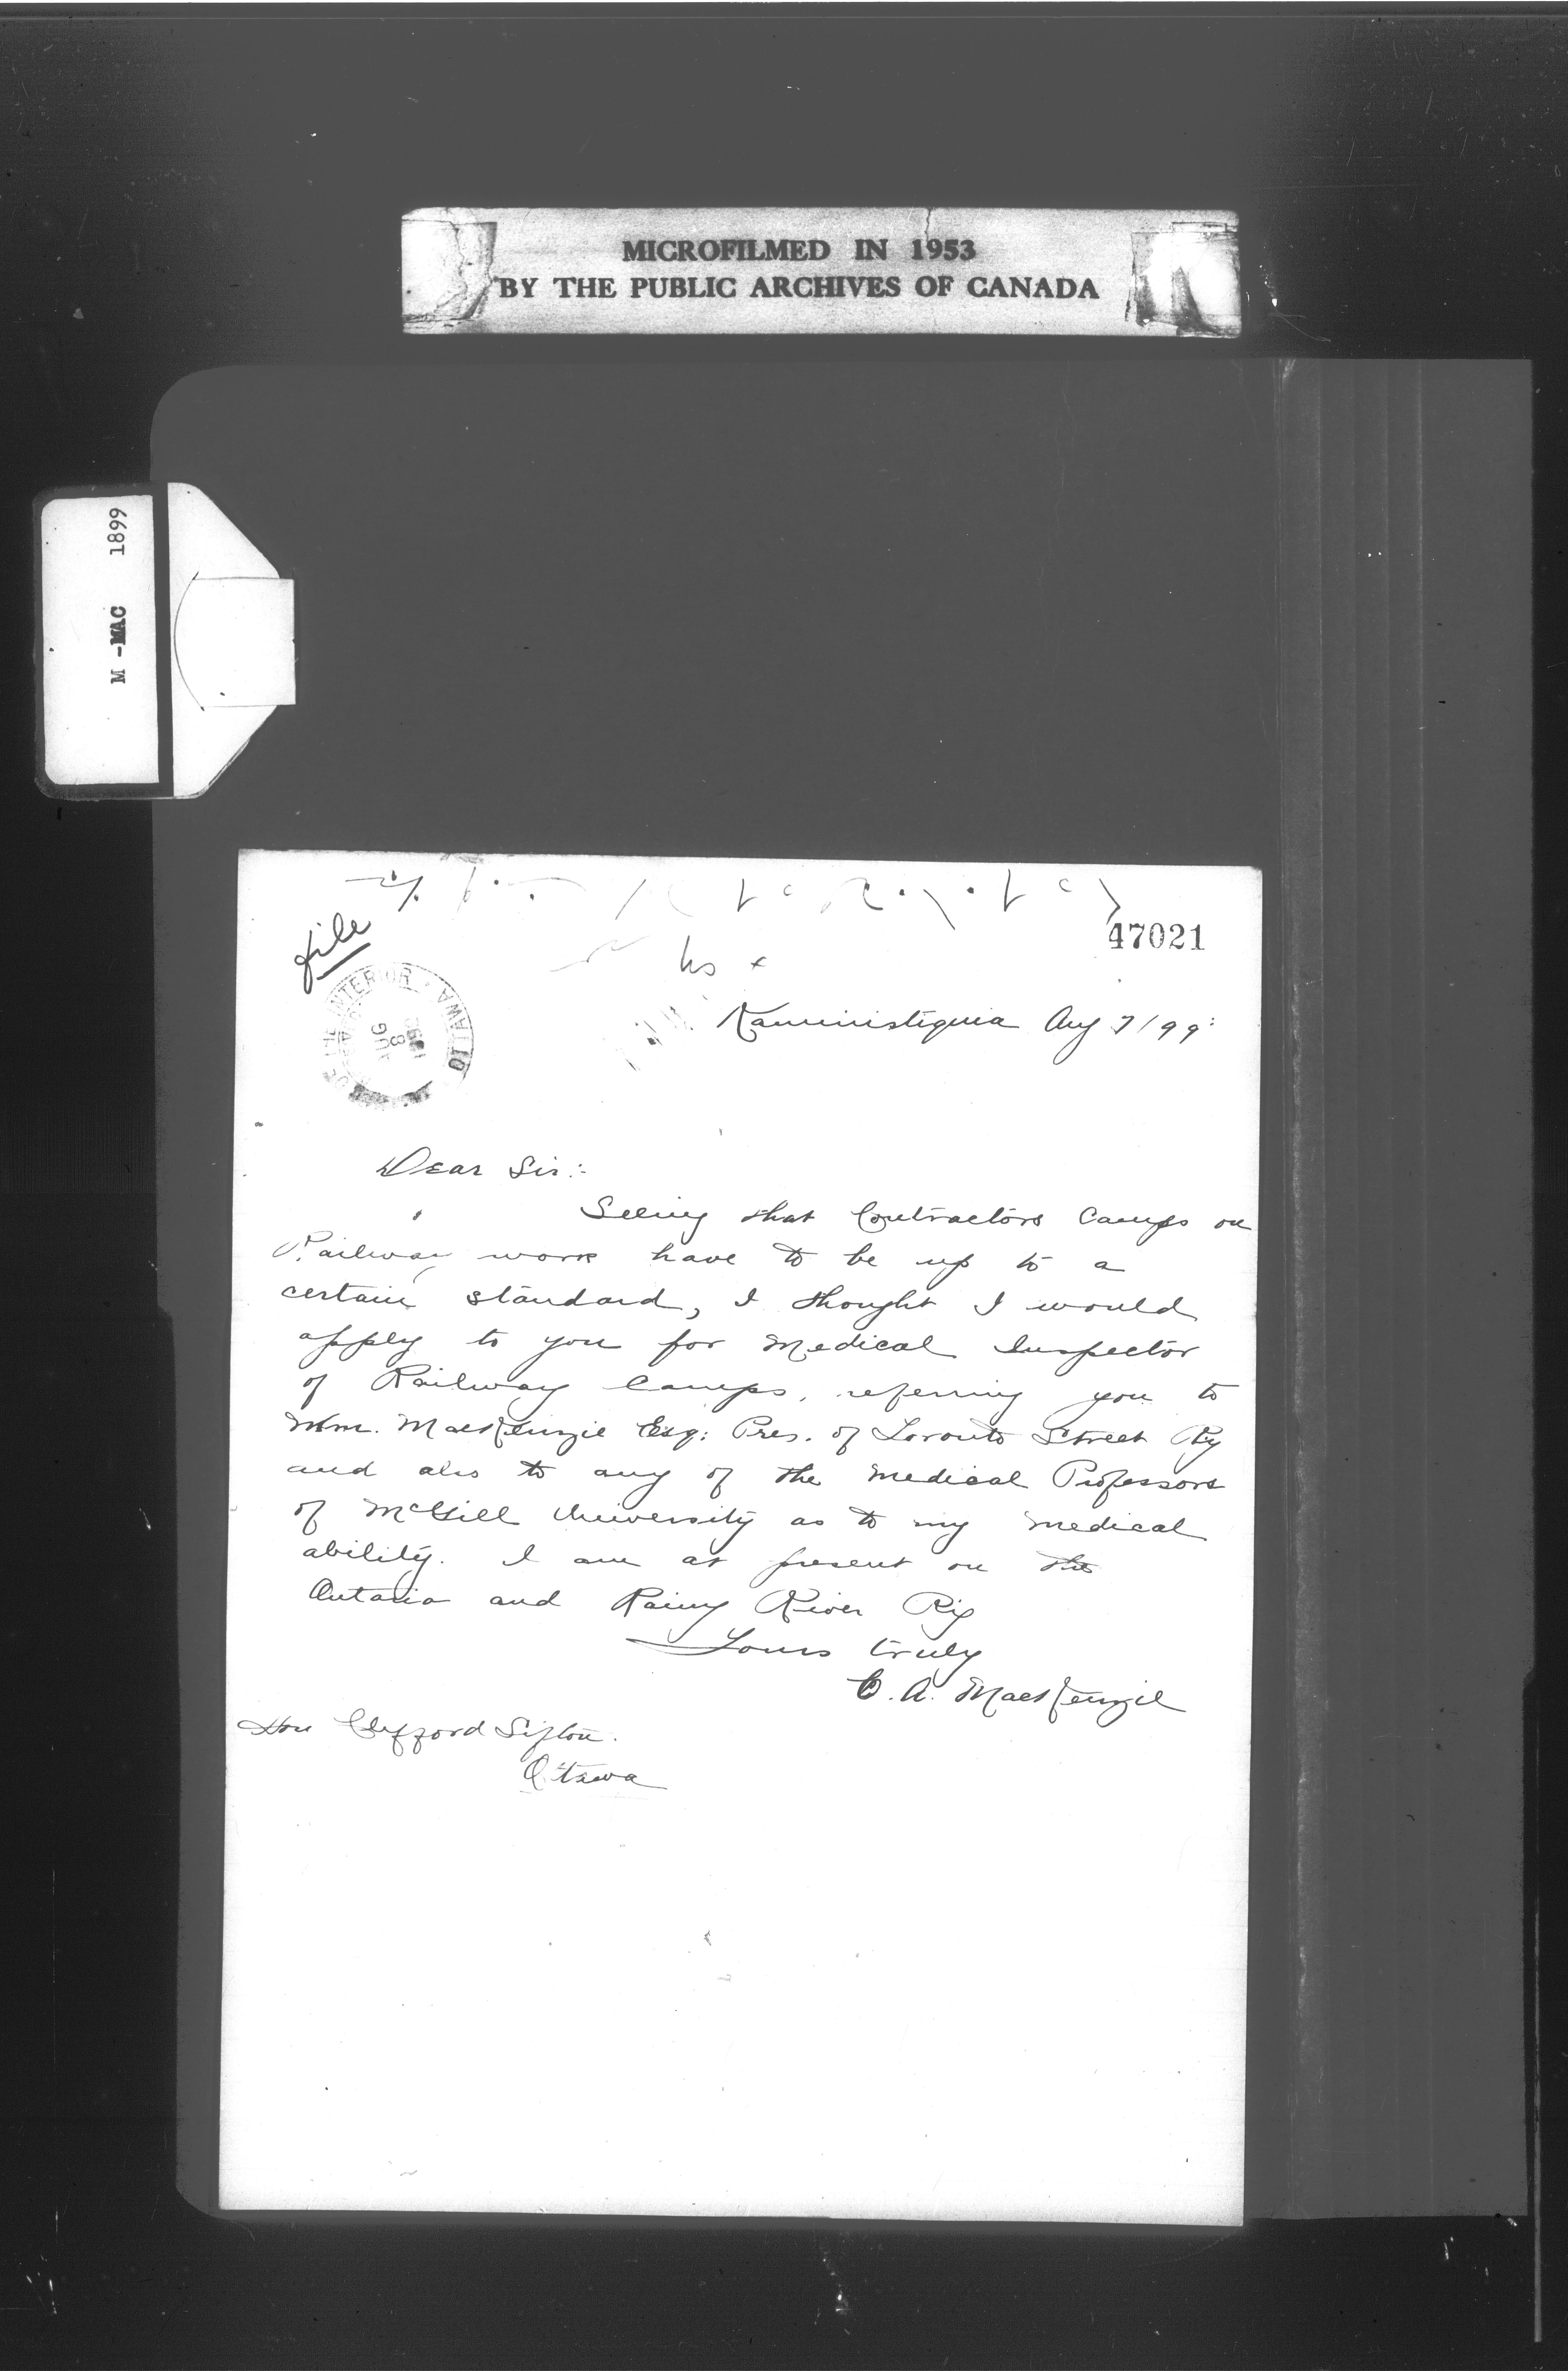 MICROFILMED IN 1953
BY THE PUBLIC ARCHIVES OF CANADA
M - MAC 1899
file
47021
INTERIOR OTTAWA
AUG 8
Kaministiquia Aug 7/99:
Dear Sir:-
Seeing that Contractors Camps on
Railway work have to be up to a
certain standard, I thought I would
apply to you for Medical Inspector
of Railway Camps, referring you to
Wm. MacKenzie Esq: Pres. of Toronto Street Ry
and also to any of the Medical Professors
of McGill University as to my medical
ability. I am at present on the
Ontario and Rainy River Ry
Yours truly
C. A. MacKenzie
Hon Clifford Sifton.
Ottawa